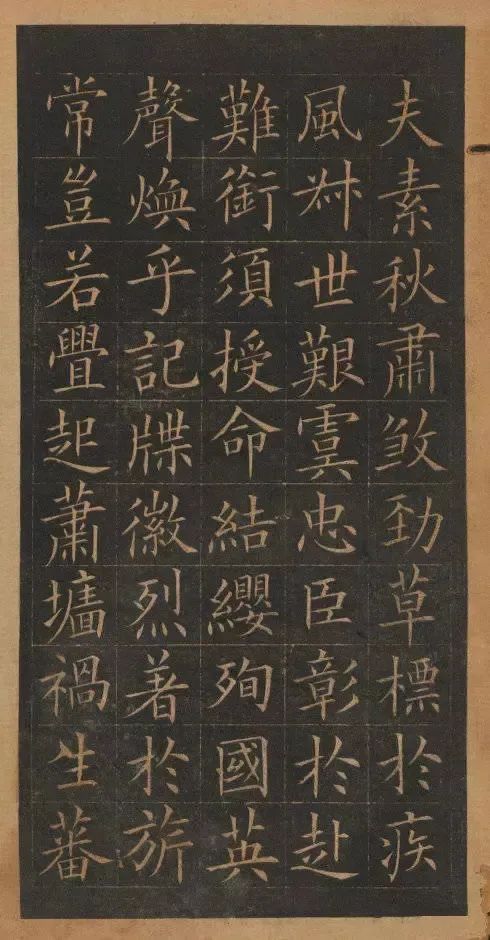 夫素秋肅煞勁草標於疾
風叔世艱虞忠臣彰於赴
難銜須授命結纓殉國英
聲煥乎記牒徽烈著於旂
常豈若舋起蕭墻禍生蕃